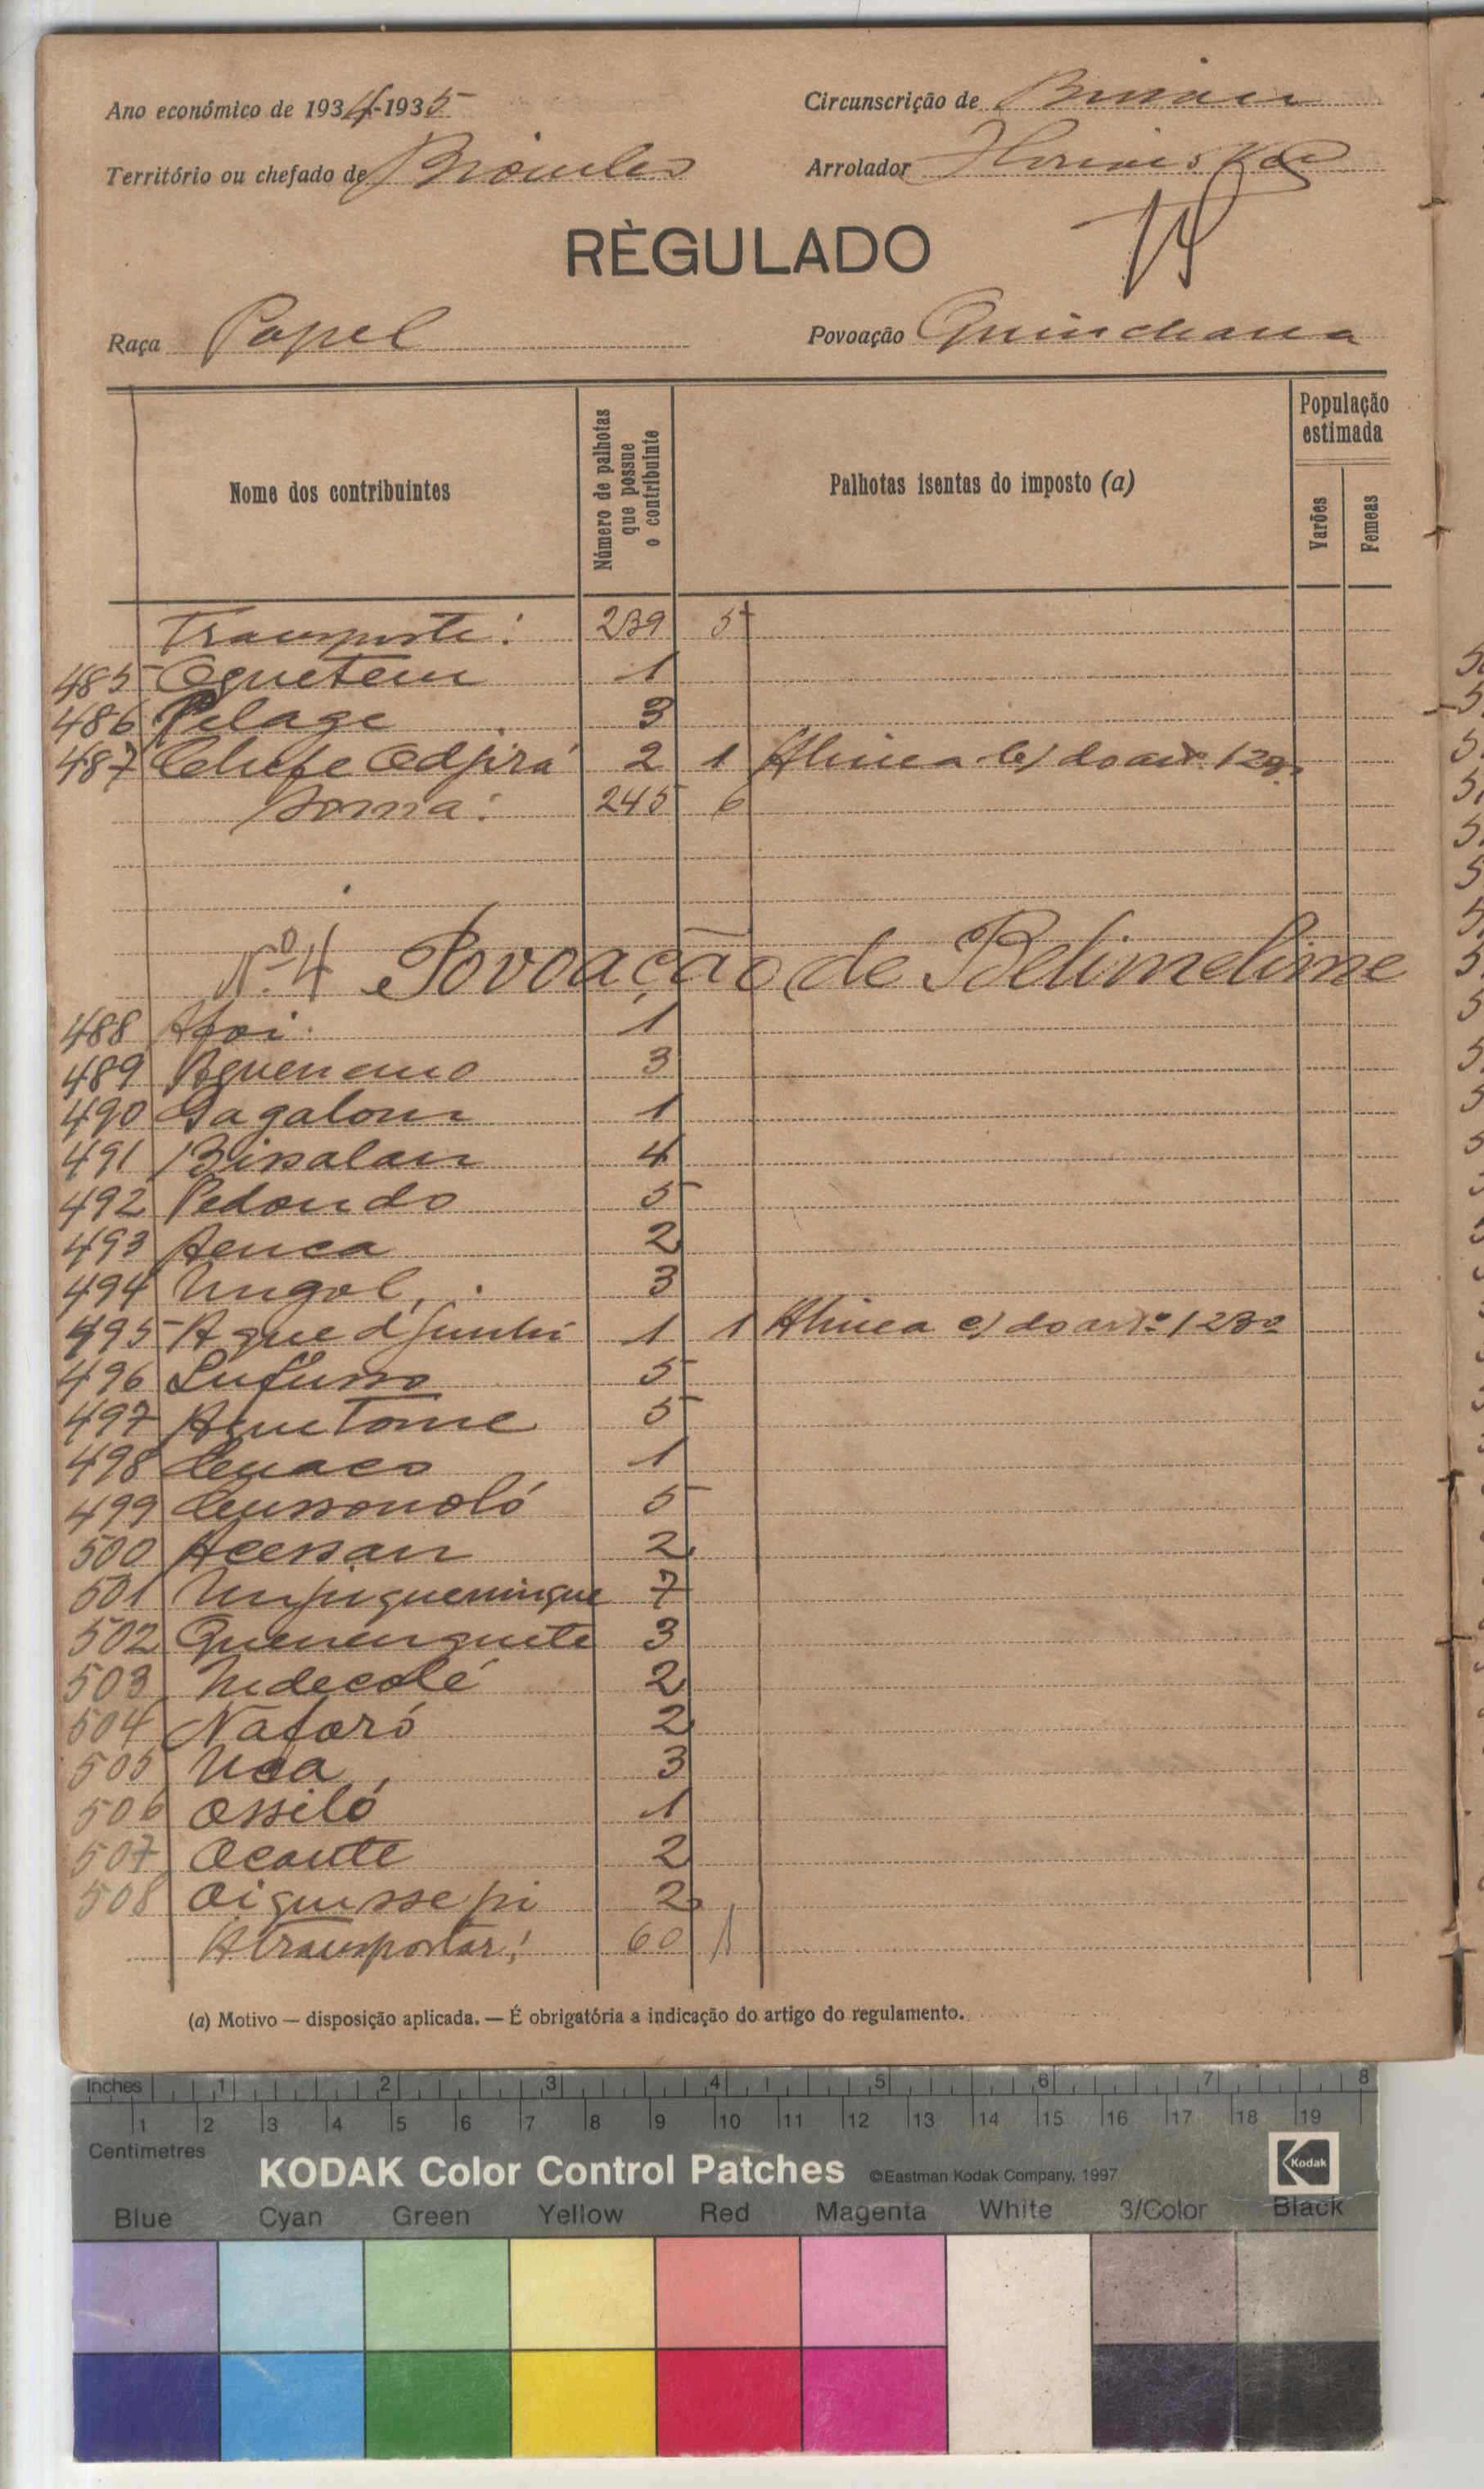 Ano económico de 1934-1935
Circunscrição de Bissau
Território ou chefado de
Arrolador
RÈGULADO
Raça Papel
Povoação Quinchana
Nome dos contribuintes
Número de palhotas que possue o contribuinte
Palhotas isentas do imposto (a)
População estimada
Varões
Femeas
Transporte: 239 5
485 Oquetem 1
486 Pelage 3
487 Chefe Odjirá 2 1 Alinea b) do art. 123º
Soma: 245 6
Nº 4 Povoação de Belimelime
488 Afoi 1
489 Aguenano 3
490 Gagalom 1
491 Bissalan 4
492 Pedondo 5
493 Aenca 2
494 Ungol 3
495 A que djunhi 1 1 Alinea c) do artº 123º
496 Lufusso 5
497 Aquetome 5
498 Cuaco 1
499 Cussonoló 5
500 Acessan 2
501 Unpiqueningue 7
502 Quenenguete 3
503 Indecolé 2
504 Naforó 2
505 3
506 Ossiló 1
507 Ocante 2
508 Oiguissepi 2
A transportar: 60 1
(a) Motivo — disposição aplicada. — É obrigatória a indicação do artigo do regulamento.
Inches 1 2 3 4 5 6 7 8
1 2 3 4 5 6 7 8 9 10 11 12 13 14 15 16 17 18 19
Centimetres
KODAK Color Control Patches ©Eastman Kodak Company, 1997 Kodak
Blue Cyan Green Yellow Red Magenta White 3/Color Black